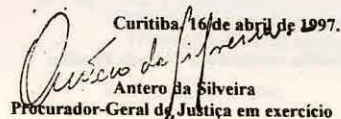 Curitiba, 16 de abril de 1997.
Antero da Silveira
Procurador-Geral de Justiça em exercício